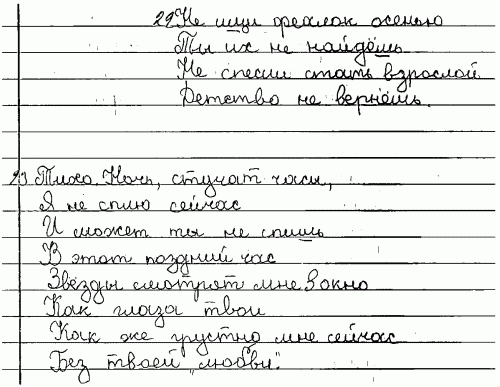 22 Не ищи фиалок осенью
Ты их не найдёшь
Не спеши стать взрослой
Детство не вернёшь.
23. Тихо. Ночь, стучат часы,
Я не сплю сейчас
И может ты не спишь
В этот поздний час
Звёзды смотрят мне в окно
Как глаза твои
Как же грустно мне сейчас
Без твоей „любви".